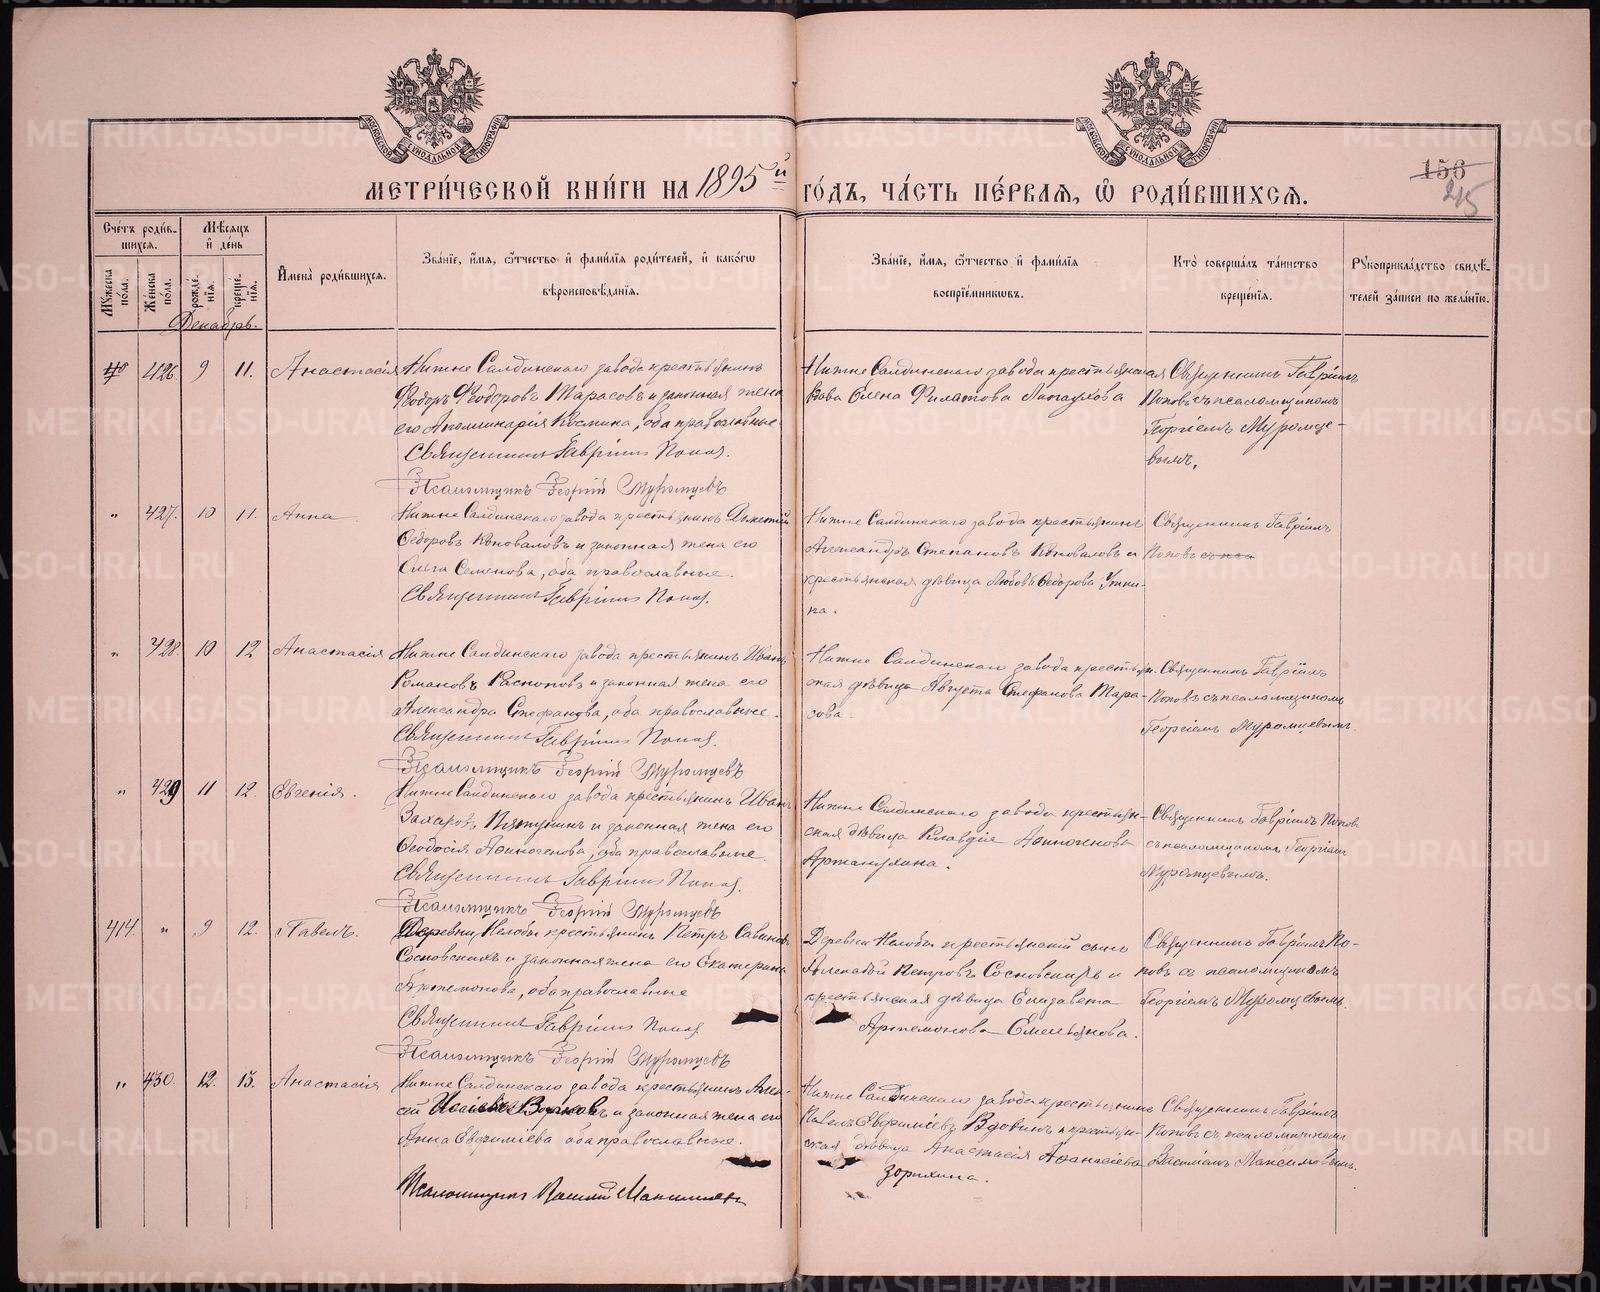 МОСКОВСКОЙ СѴНОДАЛЬНОЙ ТИПОГРАФІИ
МОСКОВСКОЙ СѴНОДАЛЬНОЙ ТИПОГРАФІИ
156
215
МЕТРИ́ЧЕСКОЙ КНИ́ГИ НА 1895й ГО́ДЪ, ЧА́СТЬ ПЕ́РВАЯ, Ѡ РОДИ́ВШИХСЯ.
Сче́тъ роди́в-
шихся.
Мѣ́сяцъ
и҆ де́нь
Му́жеска
по́ла.
Же́нска
по́ла.
рожде́-
нїя.
креще́-
нїя.
И҆мена̀ роди́вшихся.
Зва́нїе, и҆́мя, ѻ҆́тчество и҆ фами́лїя роди́телей, и҆ како́гѡ
вѣроисповѣ́данїя.
Зва́нїе, и҆́мя, ѻ҆́тчество и҆ фами́лїя
воспрїе́мникѡвъ.
Кто̀ соверша́лъ та́инство
креще́нїя.
Рꙋкоприкла́дство свидѣ́-
телей за́писи по жела́нїю.
Декабрь.
426 9 11. Анастасія
Нижне Салдинскаго завода крестьянинъ
Ѳеодоръ Ѳеодоровъ Тарасовъ и законная жена
его Аполлинарія Космина, оба православные
Священникъ Гавріилъ Поповъ.
Псаломщикъ Георгій Муромцевъ
Нижне Салдинскаго завода крестьянская
Елена Филатова
Священникъ Гавріилъ
Поповъ съ псаломщикомъ
Георгіемъ Муромце-
вымъ.
" 427. 10 11. Анна
Нижне Салдинскаго завода крестьянинъ
Ѳедоровъ Коноваловъ и законная жена его
Ольга Семенова, оба православные.
Священникъ Гавріилъ Поповъ.
Нижне Салдинскаго завода крестьянинъ
Александръ Степановъ Коноваловъ и
крестьянская дѣвица Любовь Ѳедорова Уткина.
Священникъ Гавріилъ
Поповъ съ пса
" 428. 10 12 Анастасія
Нижне Салдинскаго завода крестьянинъ Иванъ
Романовъ Распоповъ и законная жена его
Александра Стефанова, оба православные.
Священникъ Гавріилъ Поповъ.
Псаломщикъ Георгій Муромцевъ
Нижне Салдинскаго завода крестьян-
ская дѣвица Августа Стефанова Тара-
сова.
Священникъ Гавріилъ
Поповъ съ псаломщикомъ
Георгіемъ Муромцевымъ
" 429 11 12. Евгенія.
Нижне Салдинскаго завода крестьянинъ Иванъ
Захаровъ и законная жена его
Ѳеодосія Аѳиногенова, оба православные.
Священникъ Гавріилъ Поповъ.
Псаломщикъ Георгій Муромцевъ
Нижне Салдинскаго завода крестьян-
ская дѣвица Клавдіе Аѳиногенова
Священникъ Гавріилъ Попов
съ псаломщикомъ Георгіемъ
Муромцевымъ.
414. " 9 12. Павелъ.
Деревни Нелобы крестьянинъ Петръ Савиновъ
Сосновскихъ и законная жена его Екатерина
Артемонова, оба православные
Священникъ Гавріилъ Поповъ
Псаломщикъ Георгій Муромцевъ
Деревни Нелобы крестьянскій сынъ
Петровъ Сосновскихъ и
крестьянская дѣвица Елизавета
Артемонова Емельянова.
Священникъ Гавріилъ По-
повъ съ псаломщикомъ
Георгіемъ Муромцевымъ.
" 430. 12. 15. Анастасія
Нижне Салдинскаго завода крестьянинъ Алек-
сѣй и законная жена его
Анна Евѳиміева оба православные.
Псаломщикъ Василій Максимовъ
Нижне Салдинскаго завода крестьянинъ
Павелъ Евѳиміевъ Вдовинъ и крестьян-
ская дѣвица Анастасія Аѳанасіева
Зорихина.
Священникъ Гавріилъ
Поповъ съ псаломщикомъ
Василіемъ Максимовымъ.
METRIKI.GASO-URAL.RU